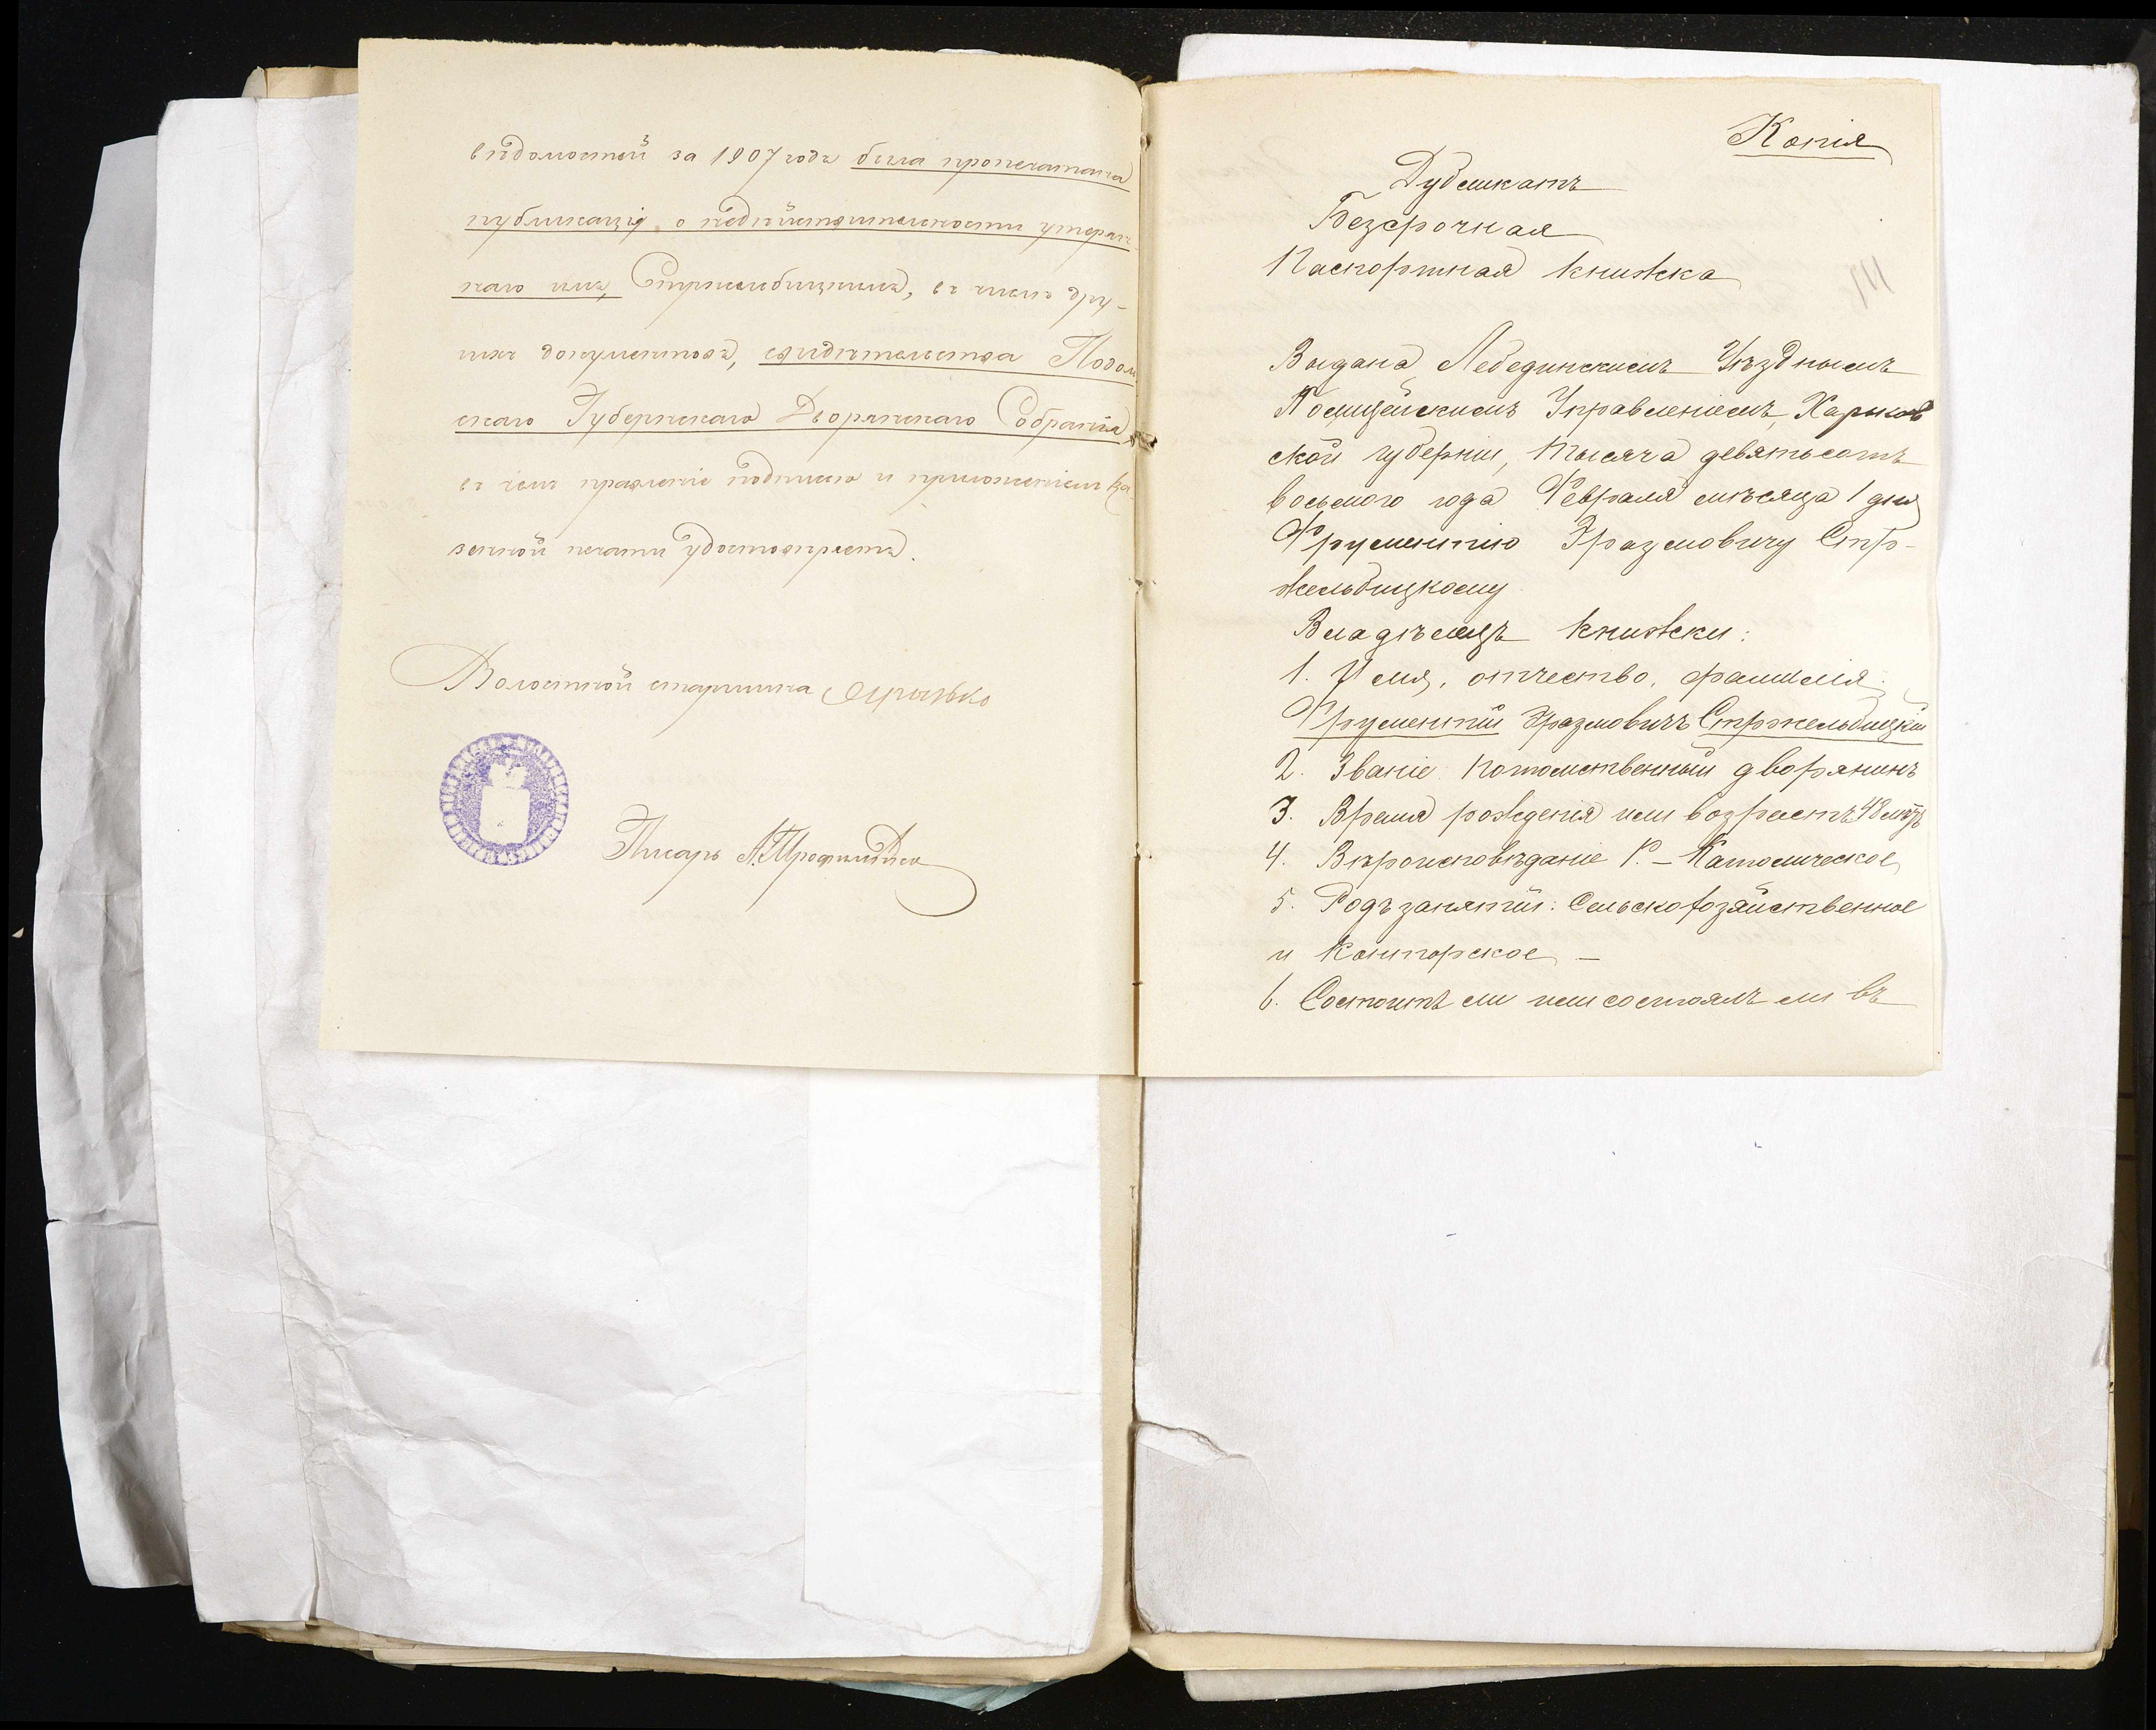 вѣдомостей за 1907 годъ была пропечатана
публикація о недѣйствительности утерян-
наго имъ, Стржельбицкимъ, въ числѣ дру-
гихъ документовъ, свидѣтельства Подоль
скаго Губернскаго Дворянскаго Собранія,
въ чемъ правленіе подписью и приложеніемъ ка-
зенной печати удостовѣряетъ.
Волостной старшина
Писарь
Копія
Дубликатъ
Безсрочная
Паспортная книжка
Выдана Лебединскимъ Уѣзднымъ
Полицейскимъ Управленіемъ, Харьков
ской губерніи, тысяча девятьсотъ
восьмого года Февраля мѣсяца 1 дня
Фрументію Эразмовичу Стр-
жельбицкому
Владѣлецъ книжки:
1. Имя, отчество, фамилія:
Фрументій Эразмовичъ Стржельбицкій
2. Званіе потомственный дворянинъ
3. Время рожденія или возрастъ 48 лѣтъ
4. Вѣроисповѣданіе Р. – Католическое
5. Родъ занятій: Сельскохозяйственное
и Конторское –
6. Состоитъ ли или состоялъ ли въ